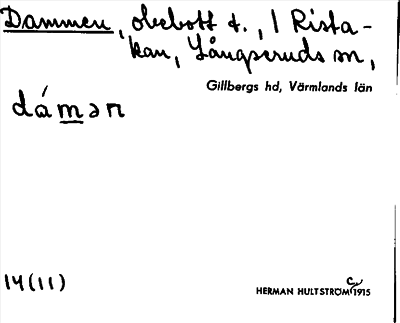 Dammen, obebott t., 1 Rista-
kan, Långseruds sn,
Gillbergs hd, Värmlands län
dámən
14(11)
HERMAN HULTSTRÖM 1915